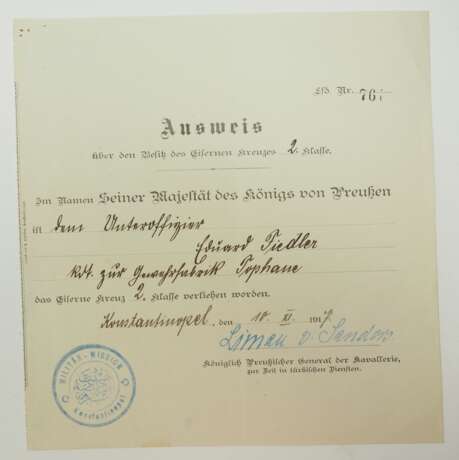 Lfd. Nr. 76
Ausweis
über den Besitz des Eisernen Kreuzes 2. Klasse.
Im Namen Seiner Majestät des Königs von Preußen
ist dem Unteroffizier
Eduard Fiedler
Kdt. zur Gewehrfabrik Tophane
das Eiserne Kreuz 2. Klasse verliehen worden.
Konstantinopel, den 10. XI. 1917.
Liman v. Sanders
Königlich Preußischer General der Kavallerie,
zur Zeit in türkischen Diensten.
MILITÄR-MISSION
Konstantinopel